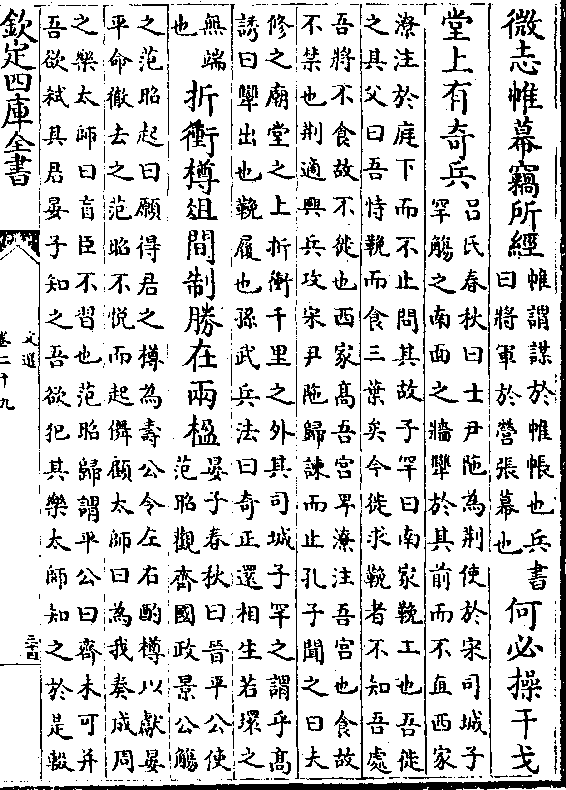 微志帷幕竊所經
帷謂謀於帷帳也兵書
曰將軍於營張幕也
何必操干戈
堂上有奇兵
呂氏春秋曰士尹陁為荆使於宋司城子
罕觴之南面之牆犫於其前而不直西家
潦注於庭下而不止問其故子罕曰南家鞔工也吾徙
之其父曰吾恃鞔而食三葉矣今徙求鞔者不知吾處
吾將不食故不徙也西家髙吾宫畀潦注吾宫也食故
不禁也荆適興兵攻宋尹陁歸諫而止孔子聞之曰夫
修之廟堂之上折衝千里之外其司城子罕之謂乎髙
誘曰犫出也鞔履也孫武兵法曰奇正還相生若環之
無端
也
折衝樽俎間制勝在兩楹
晏子春秋曰晉平公使
范昭觀齊國政景公觴
之范昭起曰願得君之樽為壽公令左右酌樽以獻晏
平命徹去之范昭不悦而起儛顧太師曰為我奏成周
之樂太師曰盲臣不習也范昭歸謂平公曰齊未可并
吾欲弑其君晏子知之吾欲犯其樂太師知之於是輟
欽定四庫全書
文選
卷二十九